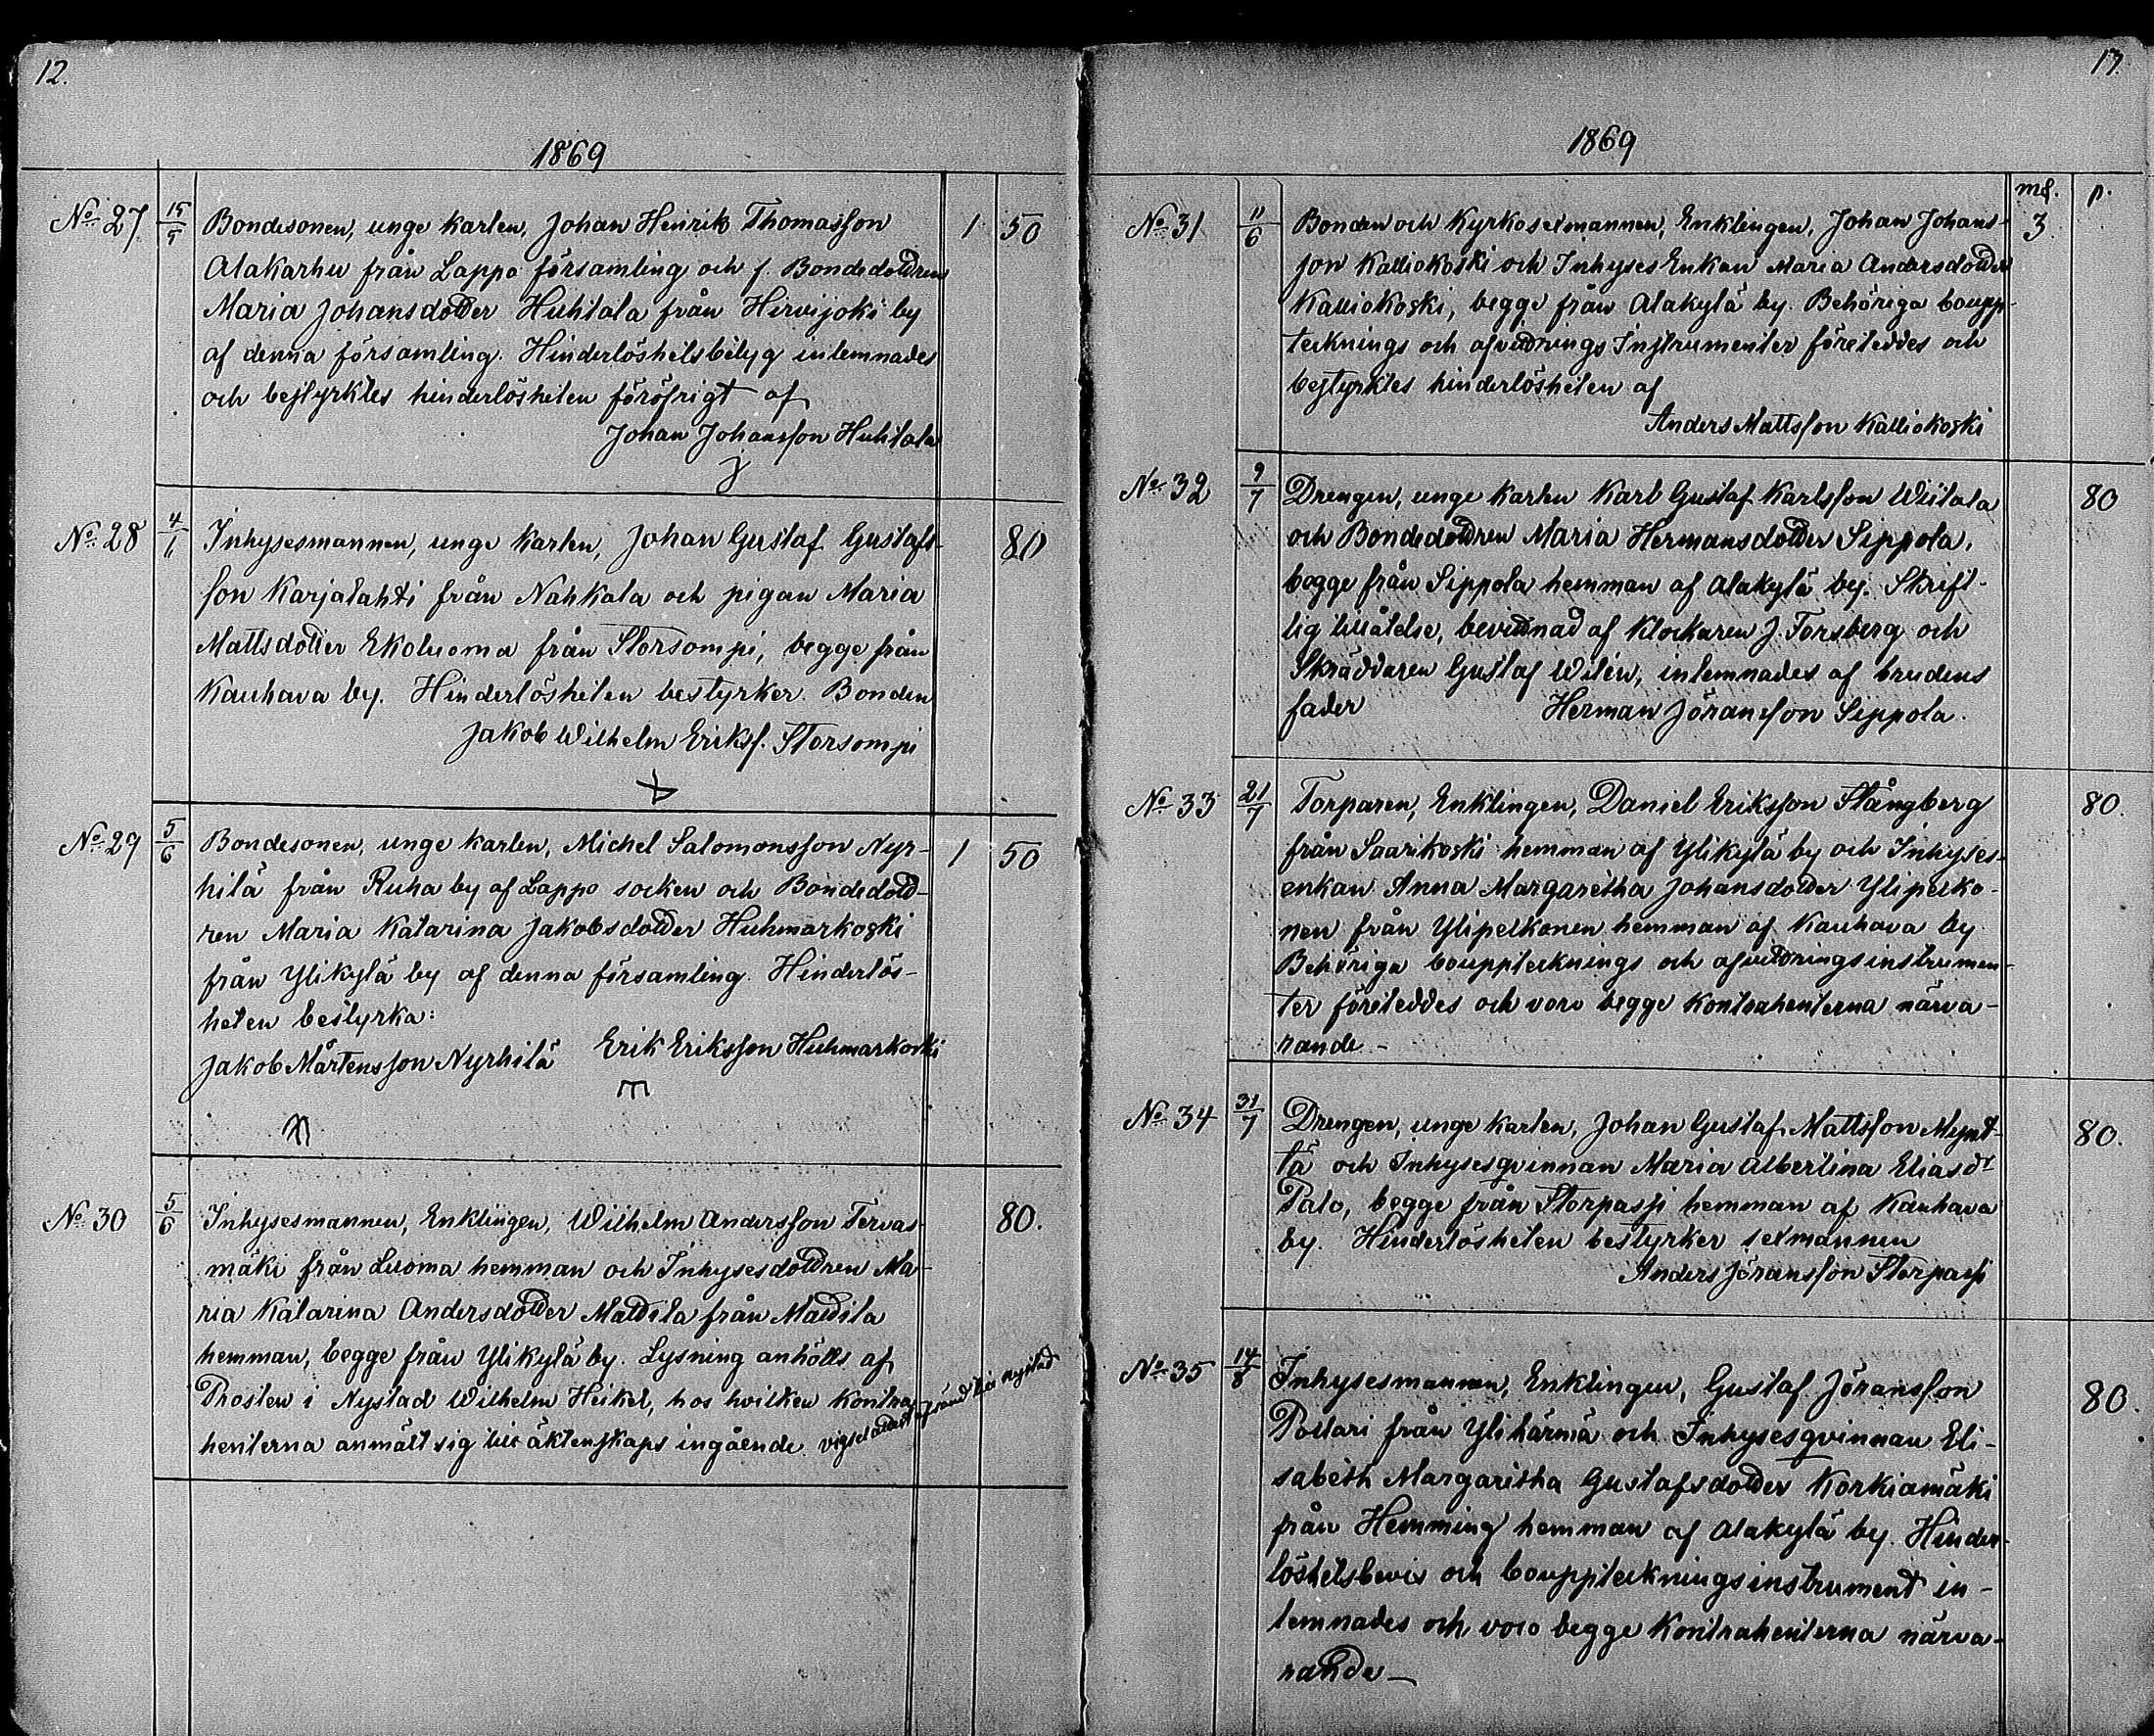 12.
1869
No 27 15/5 Bondesonen, unge karlen, Johan Henrik Thomasson 1 50
Alakarhu från Lappo församling och f. Bondedottren
Maria Johansdotter Huhtala från Hirvijoki by
af denna församling. Hinderlöshetsbetyg inlemnades
och bestyrktes hinderlösheten föröfrigt af
Johan Johansson Huhtala
No 28 4/6 Inhysesmannen, unge karlen, Johan Gustaf Gustafs- 80
son Karjalahti från Nahkala och pigan Maria
Mattsdotter Ekoluoma från Storsompi, begge från
Kauhava by. Hinderlösheten bestyrker Bonden
Jakob Wilhelm Eriksf. Storsompi
No 29 5/6 Bondesonen, unge karlen, Michel Salomonsson Nyr- 1 50
hilä från Ruha by af Lappo socken och Bondedott-
ren Maria Katarina Jakobsdotter Huhmarkoski
från Ylikylä by af denna församling. Hinderlös-
heten bestyrka:
Jakob Mårtensson Nyrhilä Erik Eriksson Huhmarkoski
No 30 5/6 Inhysesmannen, Enklingen, Wilhelm Andersson Tervas- 80.
mäki från Luoma hemman och Inhysesdottren Ma-
ria Katarina Andersdotter Mattila från Mattila
hemman, begge från Ylikylä by. Lysning anhölls af
Prosten i Nystad Wilhelm Heikel, hos hvilken kontra-
henterna anmält sig till äktenskaps ingående. vigselattest afsänd till Nystad
13.
1869
mf. p.
No 31 11/6 Bonden och Kyrkosexmannen, Enklingen, Johan Johans- 3.
son Kalliokoski och Inhyses Enkan Maria Andersdotter
Kalliokoski, begge från Alakylä by. Behöriga boupp-
tecknings och afvittrings Instrumenter företeddes och
bestyrktes hinderlösheten af
Anders Mattsson Kalliokoski
No 32 9/7 Drengen, unge karlen Karl Gustaf Karlsson Wiitala 80
och Bondedottren Maria Hermansdotter Sippola,
begge från Sippola hemman af Alakylä by. Skrift-
lig tillåtelse, bevittnad af Klockaren J. Forsberg och
Skräddaren Gustaf Wilén, inlemnades af brudens
fader Herman Jöransson Sippola.
No 33 21/7 Torparen, Enklingen, Daniel Eriksson Stångberg 80.
från Saarikoski hemman af Ylikylä by och Inhyses-
enkan Anna Margaretha Johansdotter Ylipelko-
nen från Ylipelkonen hemman af Kauhava by
Behöriga bouppteckнings och afvittringsinstrumen-
ter företeddes och voro begge kontrahenterna närva-
rande -
No 34 31/7 Drengen, unge karlen, Johan Gustaf Mattsson Mynt- 80.
tä och Inhysesqvinnan Maria Albertina Eliasdr
Palo, begge från Storpassi hemman af Kauhava
by. Hinderlösheten bestyrker sexmannen
Anders Jöransson Storpassi
No 35 14/8 Inhysesmannen, Enklingen, Gustaf Jöransson 80.
Pollari från Ylihärmä och Inhysesqvinnan Eli-
sabeth Margaretha Gustafsdotter Korkiamäki
från Hemming hemman af Alakylä by. Hinder-
löshetsbevis och bouppteckningsinstrument in-
lemnades och voro begge kontrahenterna närva-
rande -